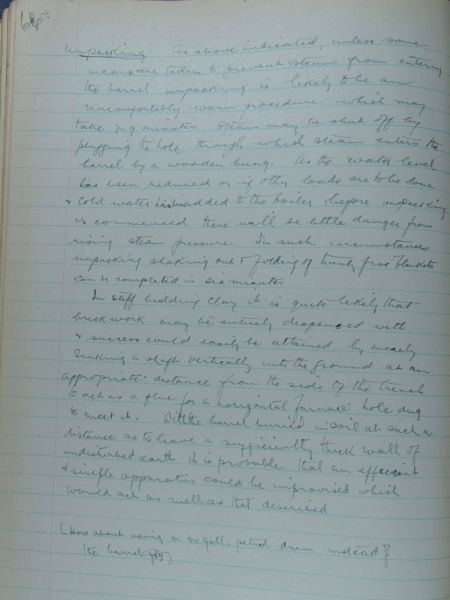 Unpacking As above indicated, unless some
means are taken to prevent steam from entering
the barrel unpacking is likely to be an
uncomfortably warm procedure which may
take 7-9 minutes. Steam may be shut off by
plugging the hole through which steam enters the
barrel by a wooden bung. As the water level
has been reduced or if other loads are to be done
& cold water is added to the boiler before unpacking
is commenced there will be little danger from
rising steam pressure. In such circumstances
unpacking shaking out & folding of twenty five blankets
can be completed in six minutes
In stiff building clay it is quite likely that
brickwork may be entirely dispensed with
& success could easily be attained by merely
sinking a shaft vertically into the ground at an
appropriate distance from the side of the trench
to act as a flue for a horizontal furnace hole dug
to meet it. With the barrel buried in soil at such a
distance as to leave a sufficiently thick wall of
undisturbed earth it is probable that an efficient
& simple apparatus could be improvised which
would act as well as that described
(How about using a galls petrol drum instead of
the barrel)